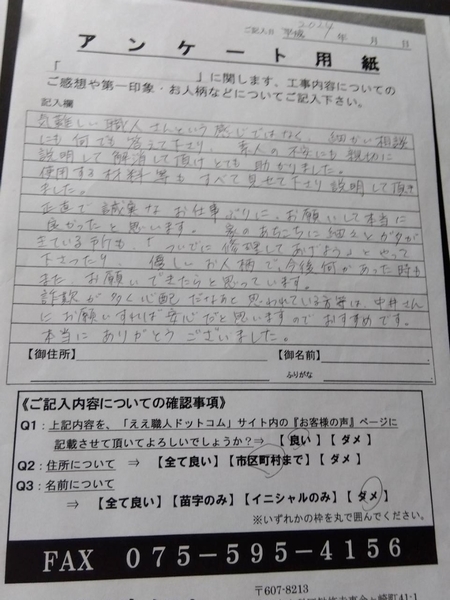 2024
ご記入日 平成 年 月 日
アンケート用紙
「 」に関します、工事内容についての
ご感想や第一印象・お人柄などについてご記入下さい。
記入欄
気難しい職人さんという感じではなく、細かい相談
にも何でも答えて下さり、素人の不安にも親切に
説明して解消して頂けとても助かりました。
使用する材料等もすべて見せて下さり説明して頂き
ました。
正直で誠実なお仕事ぶりに、お願いして本当に
良かったと思います。家のあちこちに細々とガタが
きている所も「ついでに修理してあげよう」とやって
下さったり、優しいお人柄で、今後何かあった時も
また お願いできたらと思っています。
詐欺が多く心配だなあと思われている方等は、中井さん
にお願いすれば安心だと思いますのでおすすめです。
本当にありがとうございました。
【御住所】 【御名前】
ふりがな
《ご記入内容についての確認事項》
Q1：上記内容を、「ええ職人ドットコム」サイト内の『お客様の声』ページに
記載させて頂いてよろしいでしょうか？⇒【良い】【ダメ】
Q2：住所について ⇒【全て良い】【市区町村まで】【ダメ】
Q3：名前について
⇒【全て良い】【苗字のみ】【イニシャルのみ】【ダメ】
※いずれかの枠を丸で囲んでください。
FAX 075－595－4156
〒607-8213